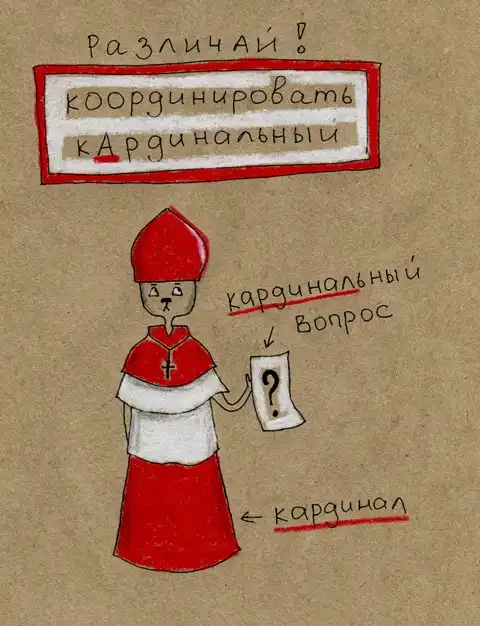 Различай!
координировать
кАрдинальный
кардинальный
вопрос
?
кардинал